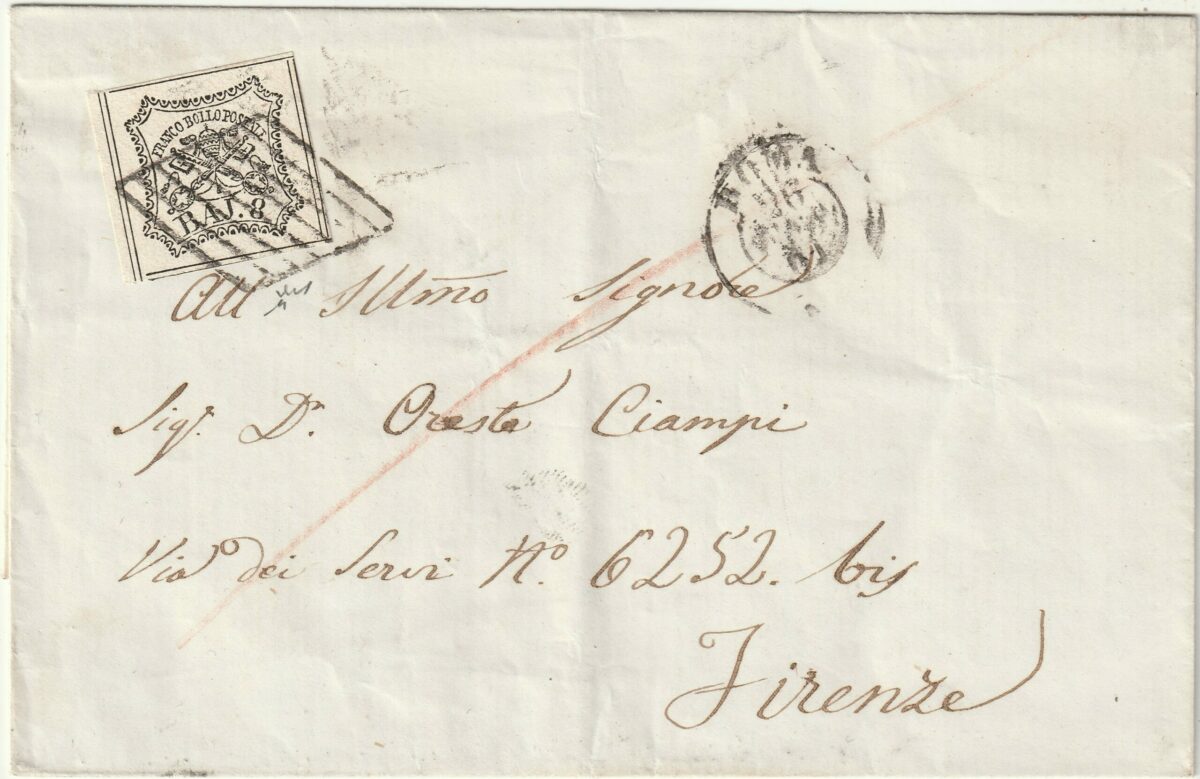 FRANCO BOLLO POSTALE
BAJ. 8
ROMA
All Illmo Signore
Sig.r D.r Oreste Ciampi
Via dei Servi No. 6252. bis
Firenze